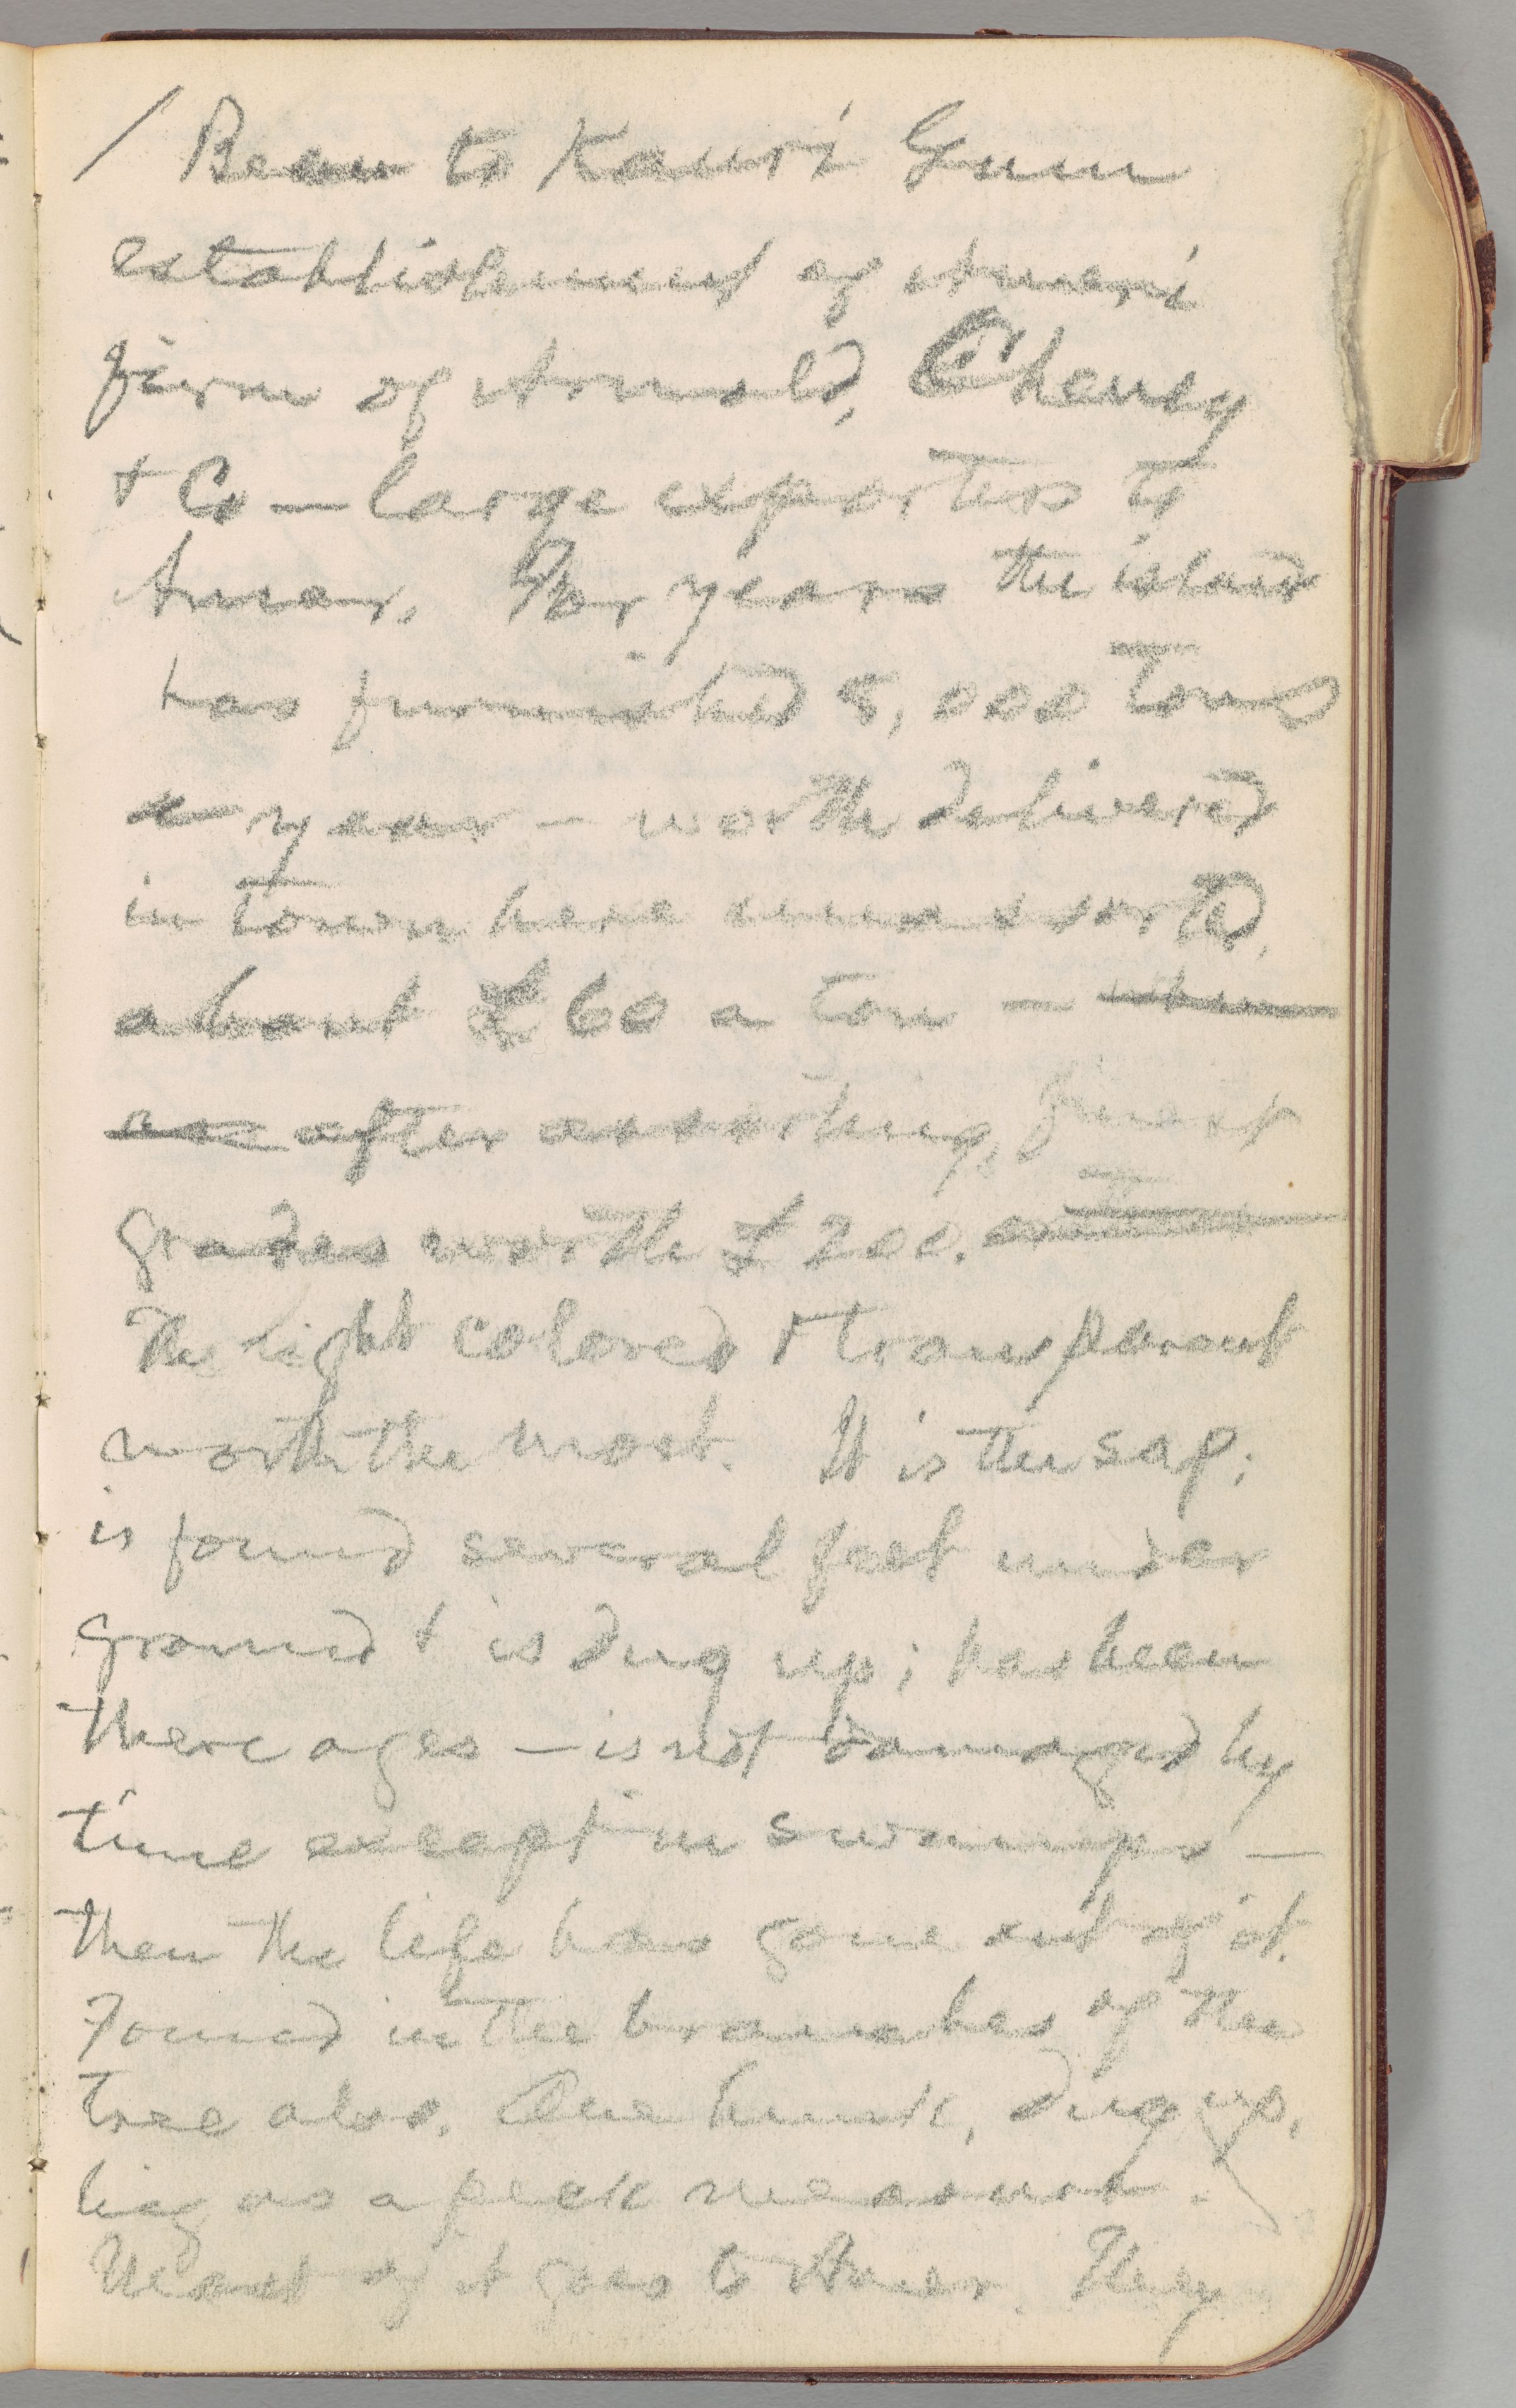 / Been to Kauri Gum
establishment of Ameri
firm of Arnold, Cheney
+ Co — large exporters to
Amer. For years the island
has furnished 8,000 tons
a year — worth delivered
in town here unassorted,
about £60 a ton —
after assorting, finest
grades worth £200.
The light colored + transparent
worth the most. It is the sap;
is found several feet under
ground + is dug up; has been
there ages — is not damaged by
time except in swamps —
then the life has gone out of it.
Found in the branches of the
tree also. One hunk, dug up,
big as a peck measure.
Most of it goes to Amer. They